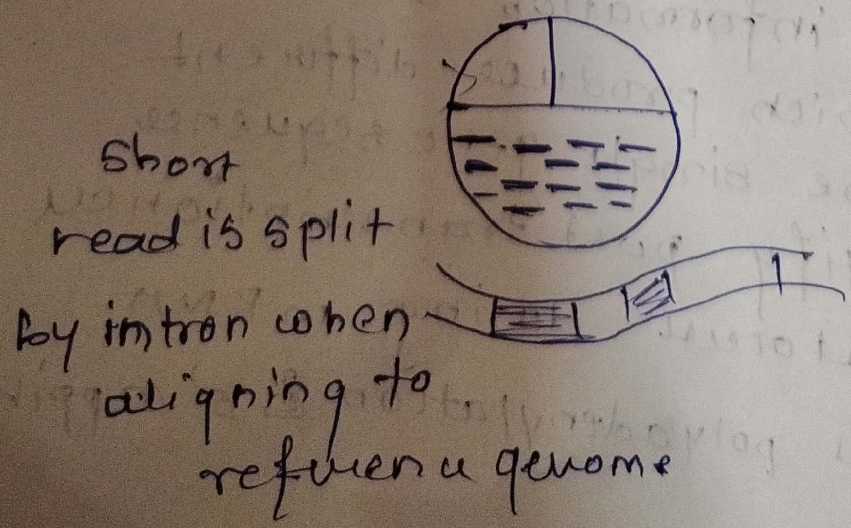 short
read is split
by intron when
aligning to
reference genome